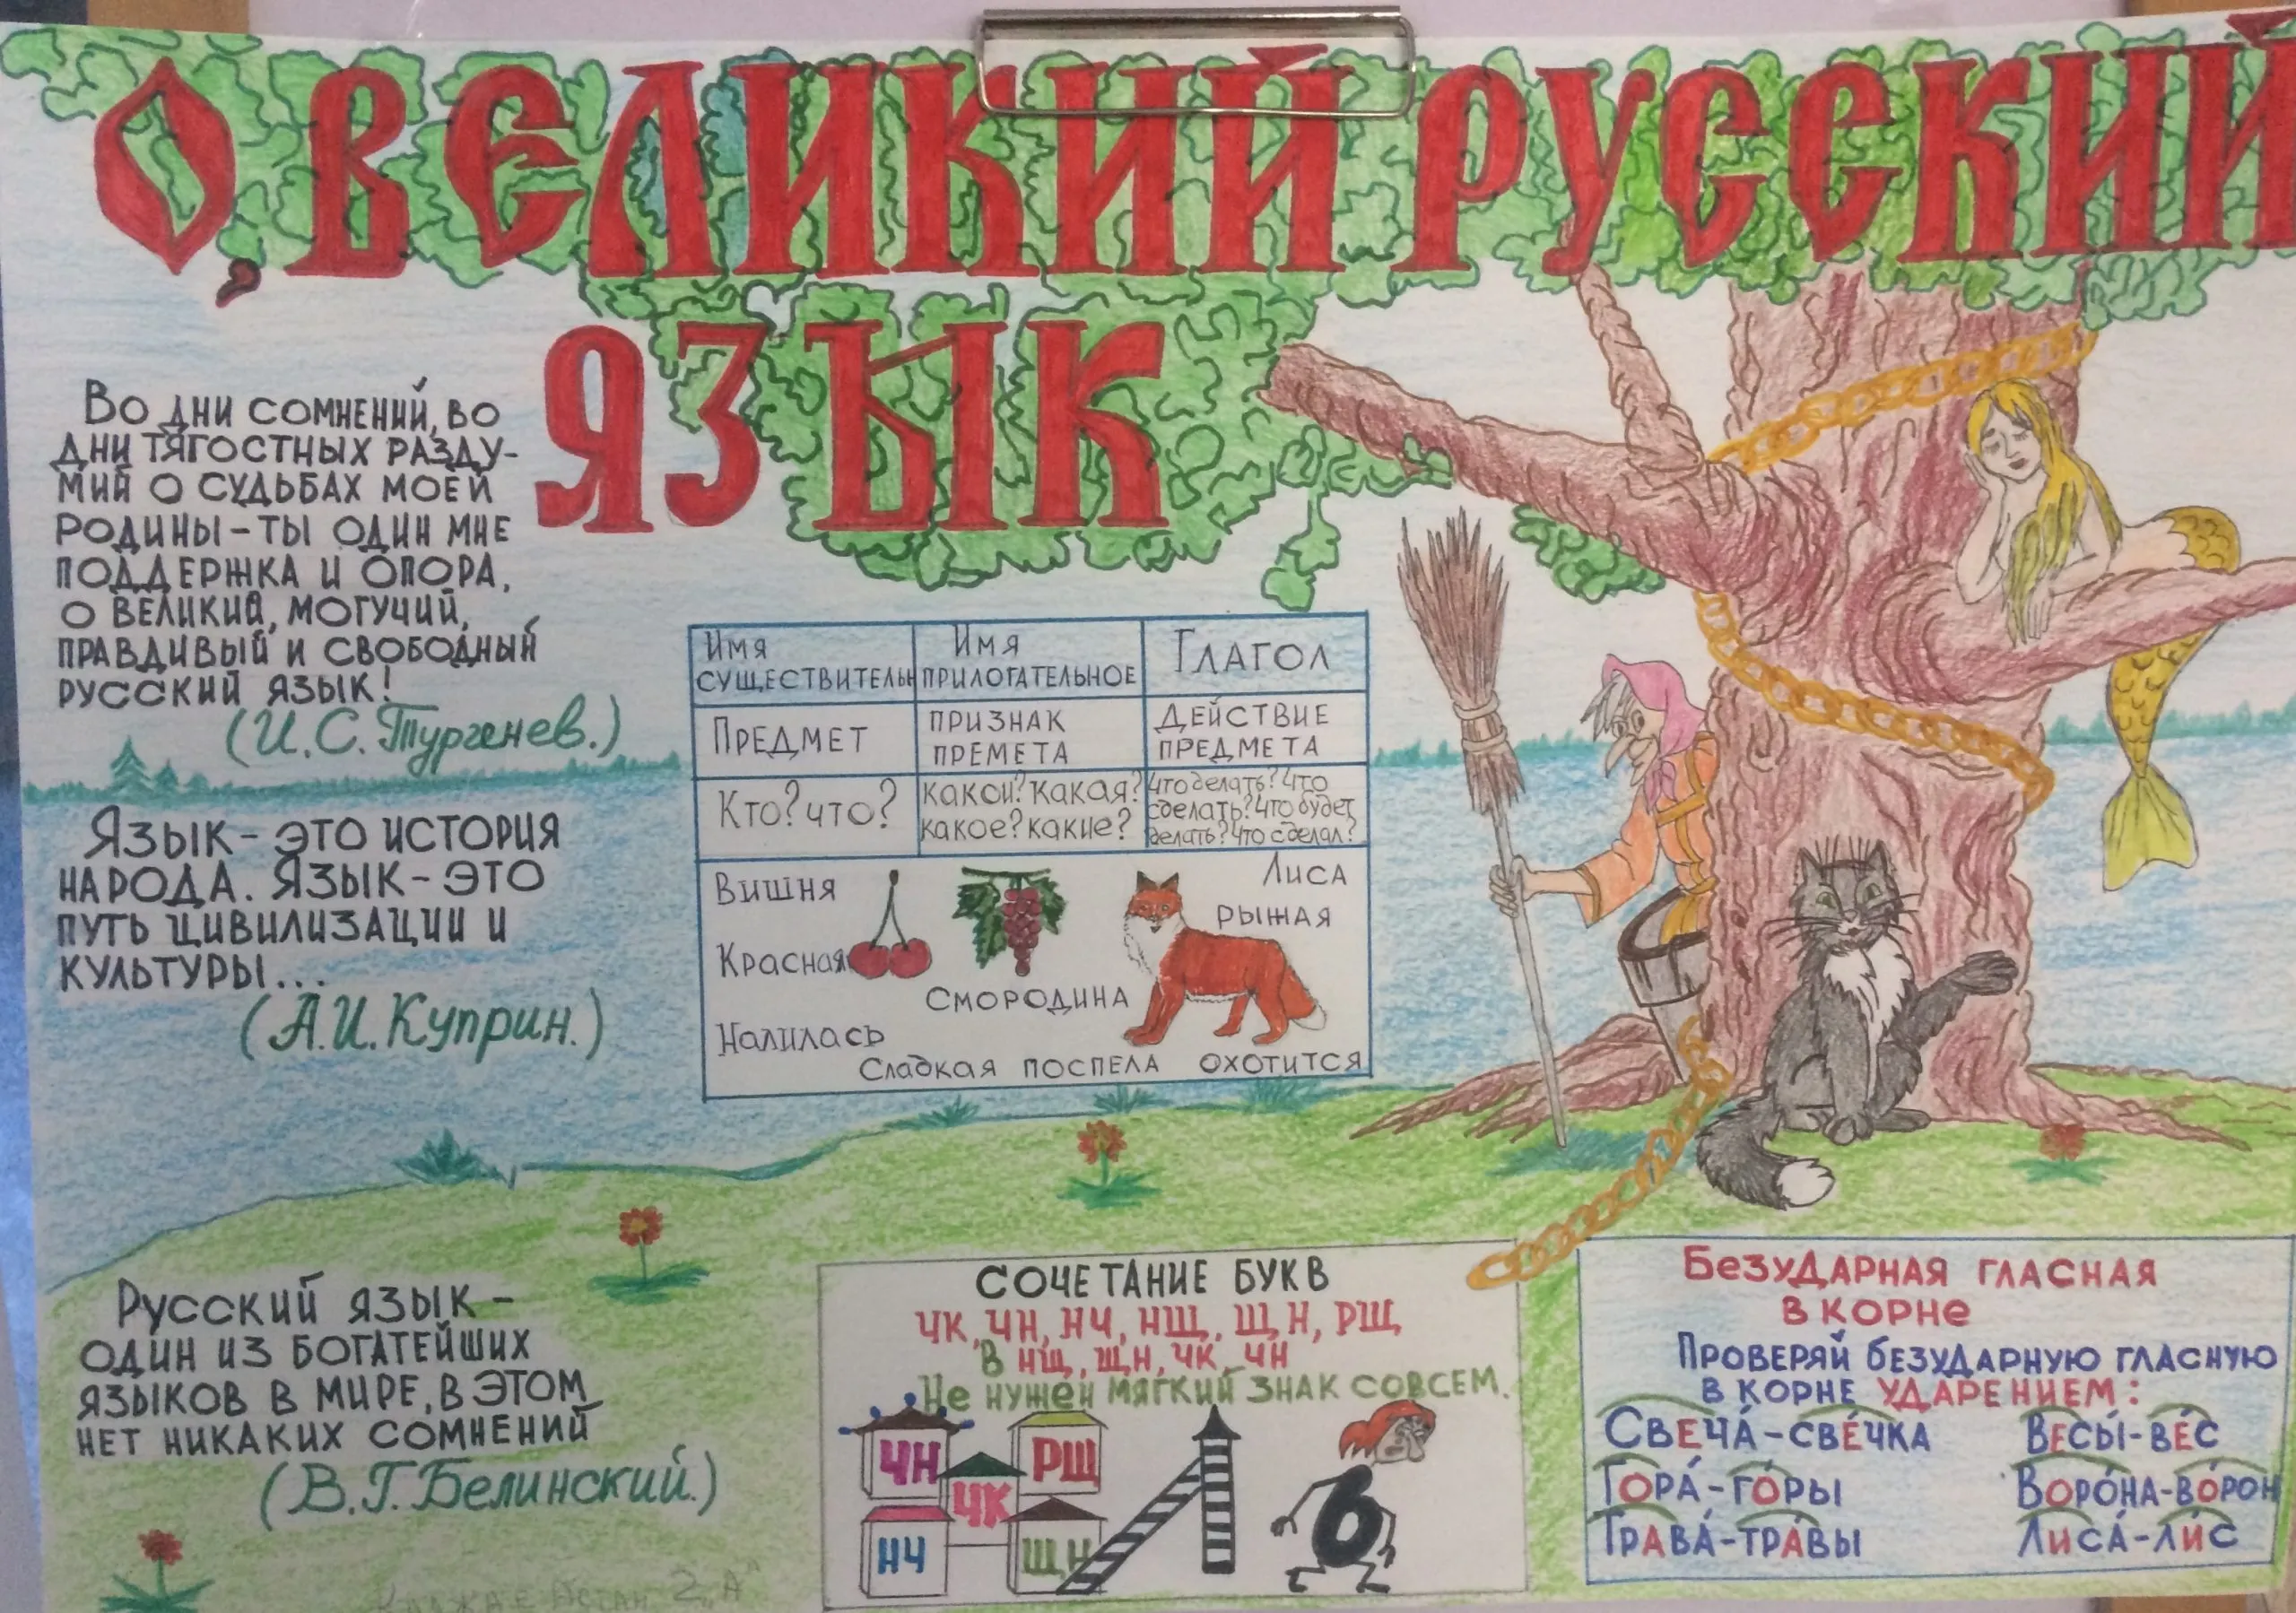 О, ВЕЛИКИЙ РУССКИЙ
ЯЗЫК
Во дни сомнений, во
дни тягостных разду-
мий о судьбах моей
родины - ты один мне
поддержка и опора,
о великий, могучий,
правдивый и свободный
русский язык!
(И.С. Тургенев.)
Язык - это история
народа. Язык - это
путь цивилизации и
культуры...
(А.И. Куприн.)
Русский язык -
один из богатейших
языков в мире, в этом
нет никаких сомнений
(В.Г. Белинский.)
Имя существительн
Имя прилогательное
Глагол
Предмет
признак премета
действие предмета
Кто? что?
какой? какая?
какое? какие?
что делать? что
сделать? что будет
делать? что сделал?
Вишня
Красная
Налилась
Смородина
Сладкая поспела
Лиса
рыжая
охотится
СОЧЕТАНИЕ БУКВ
ЧК, ЧН, НЧ, НЩ, ЩН, РЩ
В НЩ, ЩН, ЧК, ЧН
Не нужен мягкий знак совсем.
ЧН
РЩ
ЧК
НЧ
ЩН
Ь
Безударная гласная
в корне
Проверяй безударную гласную
в корне ударением:
Свеча́ - све́чка Весы́ - ве́с
Гора́ - го́ры Воро́на - во́рон
Трава́ - тра́вы Лиса́ - ли́с
2 „А"